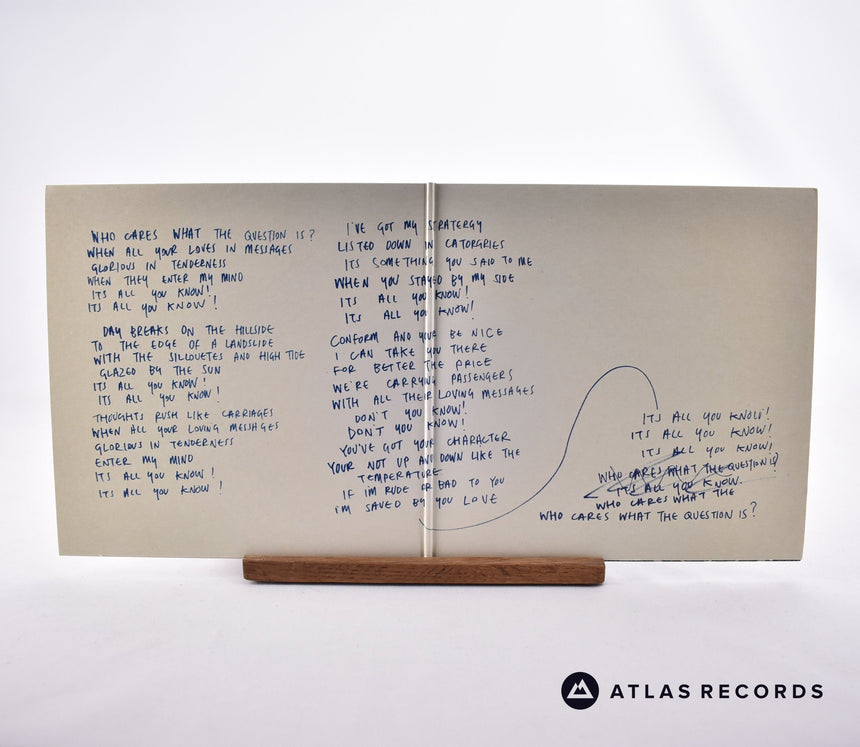 WHO CARES WHAT THE QUESTION IS?
WHEN ALL YOUR LOVES IN MESSAGES
GLORIOUS IN TENDERNESS
WHEN THEY ENTER MY MIND
ITS ALL YOU KNOW!
ITS ALL YOU KNOW!
DAY BREAKS ON THE HILLSIDE
TO THE EDGE OF A LANDSLIDE
WITH THE SILLOUETES AND HIGH TIDE
GLAZED BY THE SUN
ITS ALL YOU KNOW!
ITS ALL YOU KNOW!
THOUGHTS RUSH LIKE CARRIAGES
WHEN ALL YOUR LOVING MESSAGES
GLORIOUS IN TENDERNESS
ENTER MY MIND
ITS ALL YOU KNOW!
ITS ALL YOU KNOW!
I'VE GOT MY STRATERGY
LISTED DOWN IN CATORGRIES
ITS SOMETHING YOU SAID TO ME
WHEN YOU STAYED BY MY SIDE
ITS ALL YOU KNOW!
ITS ALL YOU KNOW!
CONFORM AND YOUR BE NICE
I CAN TAKE YOU THERE
FOR BETTER THE PRICE
WE'RE CARRYING PASSENGERS
WITH ALL THEIR LOVING MESSAGES
DON'T YOU KNOW!
DON'T YOU KNOW!
YOU'VE GOT YOUR CHARACTER
YOUR NOT UP AND DOWN LIKE THE
TEMPERATURE
IF I'M RUDE OR BAD TO YOU
I'M SAVED BY YOU LOVE
ITS ALL YOU KNOW!
ITS ALL YOU KNOW!
ITS ALL YOU KNOW!
WHO CARES WHAT THE QUESTION IS?
ITS ALL YOU KNOW.
WHO CARES WHAT THE
WHO CARES WHAT THE QUESTION IS?
ATLAS RECORDS